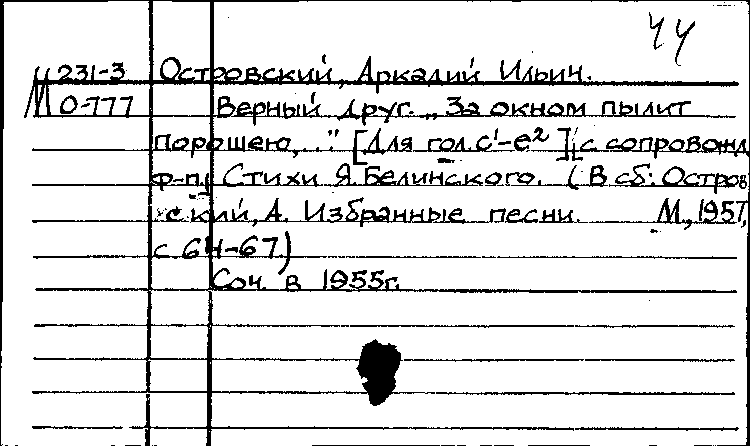 44
М 231-3 Островский, Аркадий Ильич.
М О-777 Верный друг. „За окном пылит
порошею,.." [Для гол. c¹-e² ] с сопровожд.
ф-п. Стихи Я. Белинского. (В сб: Остров
ский, А. Избранные песни. М., 1957,
с 64-67)
Соч. в 1955г.